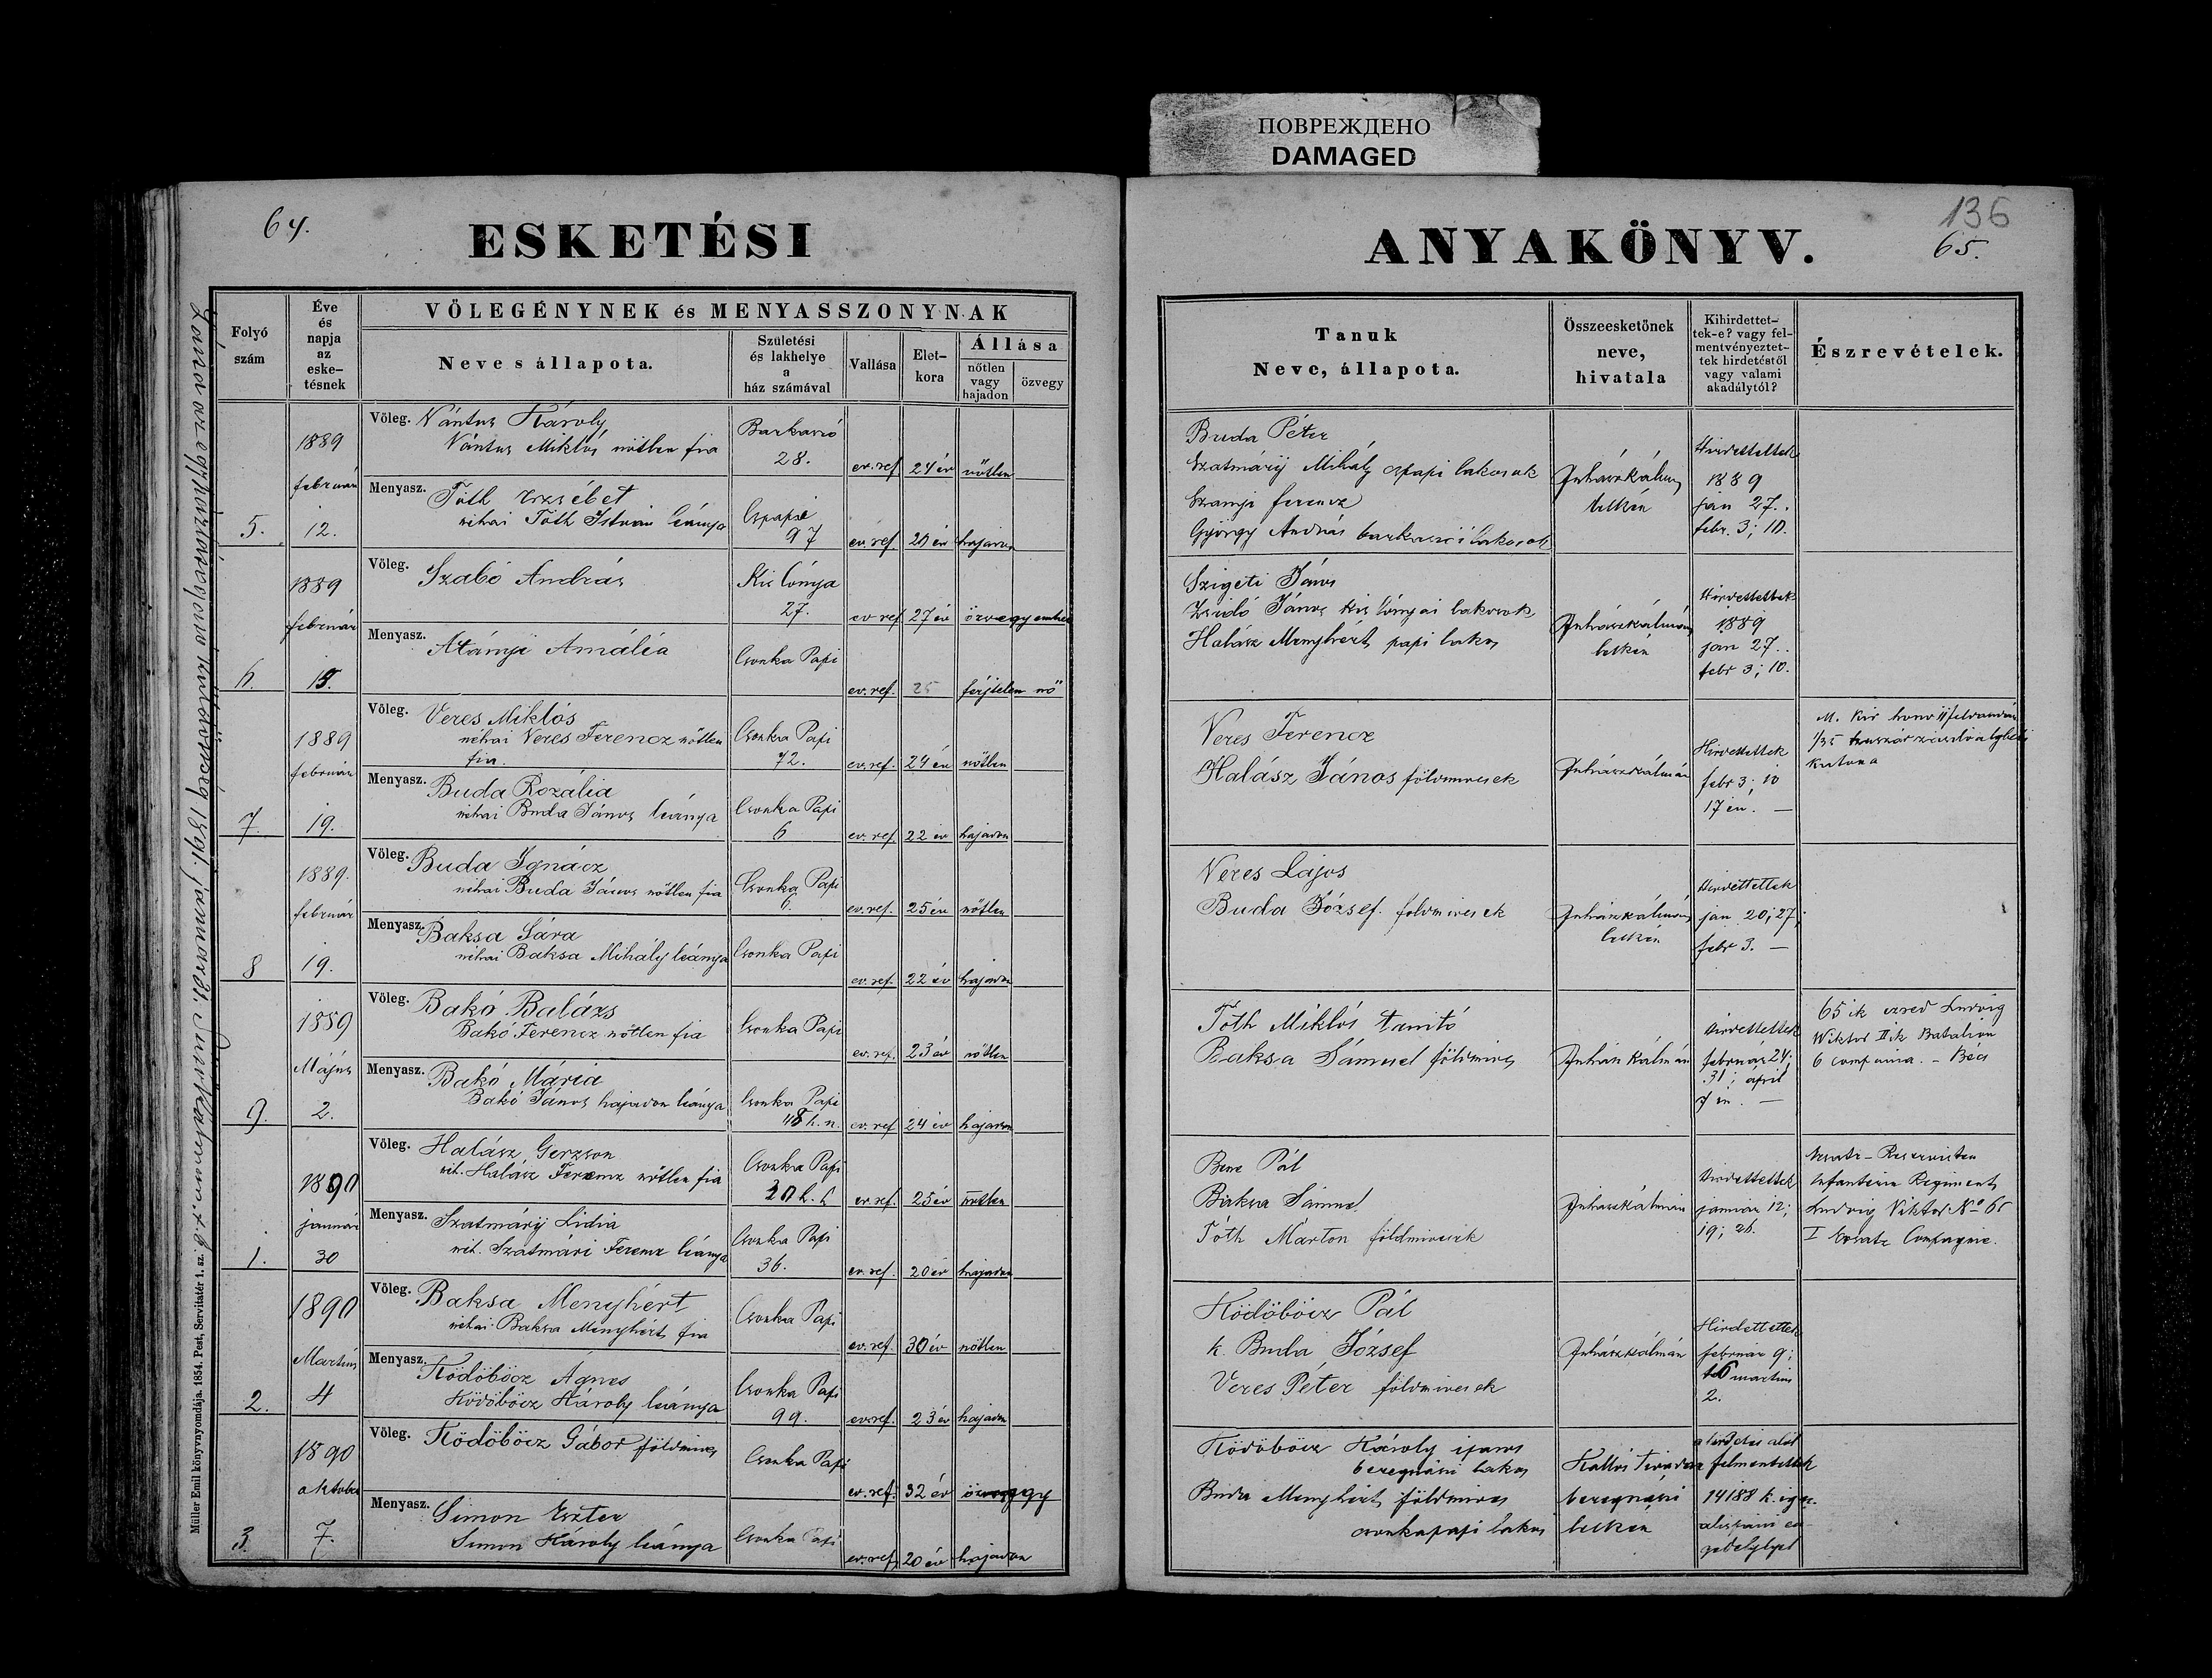 ПОВРЕЖДЕНО
DAMAGED
64.
ESKETÉSI
Folyó
szám
Éve
és
napja
az
eske-
tésnek
VŐLEGÉNYNEK és MENYASSZONYNAK
Neve s állapota.
Születési
és lakhelye
a
ház számával
Vallása
Élet-
kora
Állása
nőtlen
vagy
hajadon
özvegy
5.
1889
február
12.
Vőleg. Vántus Károly
Vántus Miklós nőtlen fia
Barkaszó
28.
ev. ref. 24 év nőtlen
Menyasz. Tóth Erzsébet
néhai Tóth István leánya
Cspapi
97
ev. ref. 20 év hajadon
6.
1889
február
15.
Vőleg. Szabó András
Kis lónya
27.
ev ref 27 év özvegy ember
Menyasz. Atányi Amália
Csonka Papi
ev. ref. 25 férjtelen nő
7.
1889
február
19.
Vőleg. Veres Miklós
néhai Veres Ferencz nőtlen
fia.
Csonka Papi
72.
ev. ref. 24 év nőtlen
Menyasz. Buda Rozália
néhai Buda János leánya
Csonka Papi
6
ev. ref. 22 év hajadon
8
1889.
február
19.
Vőleg. Buda Ignácz
néhai Buda János nőtlen fia
Csonka Papi
6.
ev. ref. 25 év nőtlen
Menyasz. Baksa Sára
néhai Baksa Mihály leánya
Csonka Papi
ev. ref. 22 év hajadon
9.
1889
Május
2.
Vőleg. Bakó Balázs
Bakó Ferencz nőtlen fia
Csonka Papi
ev. ref. 23 év nőtlen
Menyasz. Bakó Mária
Bakó János hajadon leánya
Csonka Papi
48 h. n.
ev. ref 24 év hajadon
1.
1890
január
30
Vőleg. Halász Gerzson
néh. Halász Ferencz nőtlen fia
Csonka Papi
ev. ref. 25 év nőtlen
Menyasz. Szatmáry Lidia
néh. Szatmári Ferencz leánya
Csonka Papi
36.
ev. ref. 20 év hajadon
2.
1890
Martius
4
Vőleg. Baksa Menyhért
néhai Baksa Menyhért fia
Csonka Papi
ev. ref. 30 év nőtlen
Menyasz. Ködöböcz Ágnes
Ködöböcz Károly leánya
Csonka Papi
99.
ev. ref. 23 év hajadon
3.
1890
oktober
7.
Vőleg. Ködöböcz Gábor földmives
Csonka Papi
ev. ref. 32 év özvegy
Menyasz. Simon Eszter
Simon Károly leánya
Csonka Papi
ev. ref. 20 év hajadon
Müller Emil könyvnyomdája. 1854. Pest, Servitatér 1. sz.
136
65.
ANYAKÖNYV.
Tanuk
Neve, állapota.
Összeesketőnek
neve,
hivatala
Kihirdettet-
tek-e? vagy fel-
mentvényeztet-
tek hirdetéstől
vagy valami
akadálytól?
Észrevételek.
Buda Péter
Szatmáry Mihály cspapi lakosok
Ferencz
György András barkaszói lakosok
Juhász Kálmán
lelkész
Hirdettettek
1889
jan 27.
febr. 3; 10.
Szigeti János
Zsidó János kis lónyai lakosok
Halász Menyhért papi lakos
Juhász Kálmán
lelkész
Hirdettettek
1889
jan 27.
febr 3; 10.
Veres Ferencz
Halász János földmivesek
Juhász Kálmán
Hirdettettek
febr 3; 10
17 én. —
katona
Veres Lajos
Buda József földmivesek
Juhász Kálmán
lelkész
Hirdettettek
jan 20; 27;
febr 3. —
Tóth Miklós tanitó
Baksa Sámuel földmives
Juhász Kálmán
Hirdettettek
24;
31; april
7 én. —
65 ik ezred Ludvig
Wiktor II ik Batalion
6 compania. – Bécs
Bene Pál
Baksa Sámuel
Tóth Márton földmivesek
Juhász Kálmán
Hirdettettek
januar 12;
19; 26.
Ersatz – Reservisten
Infanterie Regiments
Ludvig Viktor No 65
I Ersatz Compagnie.
Ködöböcz Pál
k. Buda József
Veres Péter földmivesek
Juhász Kálmán
Hirdettettek
februar 9;
16 martius
2.
Ködöböcz Károly iparos
beregszászi lakos
Buda Menyhért földmives
csonkapapi lakos
beregszászi
lelkész
a hirdetés alól
felmentettek
14188 k. ig. sz.
alispáni en-
gedélylyel